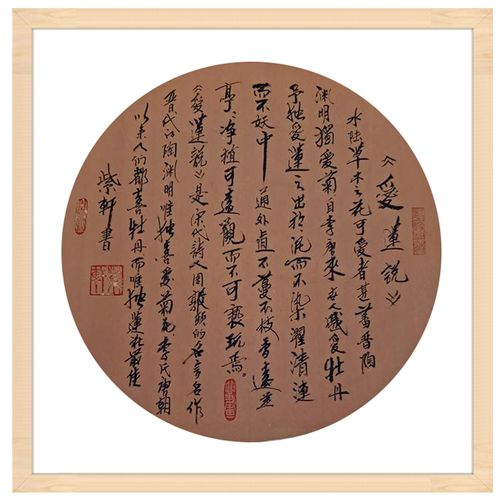 《愛蓮說》
水陸草木之花可愛者甚蕃晉陶
渊明獨爱菊自李唐來世人盛爱牡丹
予独爱蓮之出於泥而不染濯清漣
而不妖中通外直不蔓不枝香遠益
亭々净植可遠觀而不可褻玩焉。
《愛蓮說》是宋代詩人周敦頤的名言名作
晋代的陶渊明唯独喜爱菊花李氏唐朝
以来人们都喜牡丹而唯独蓮在最佳
紫軒書